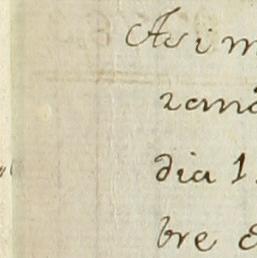 Asim
zamo
dia 1
bre